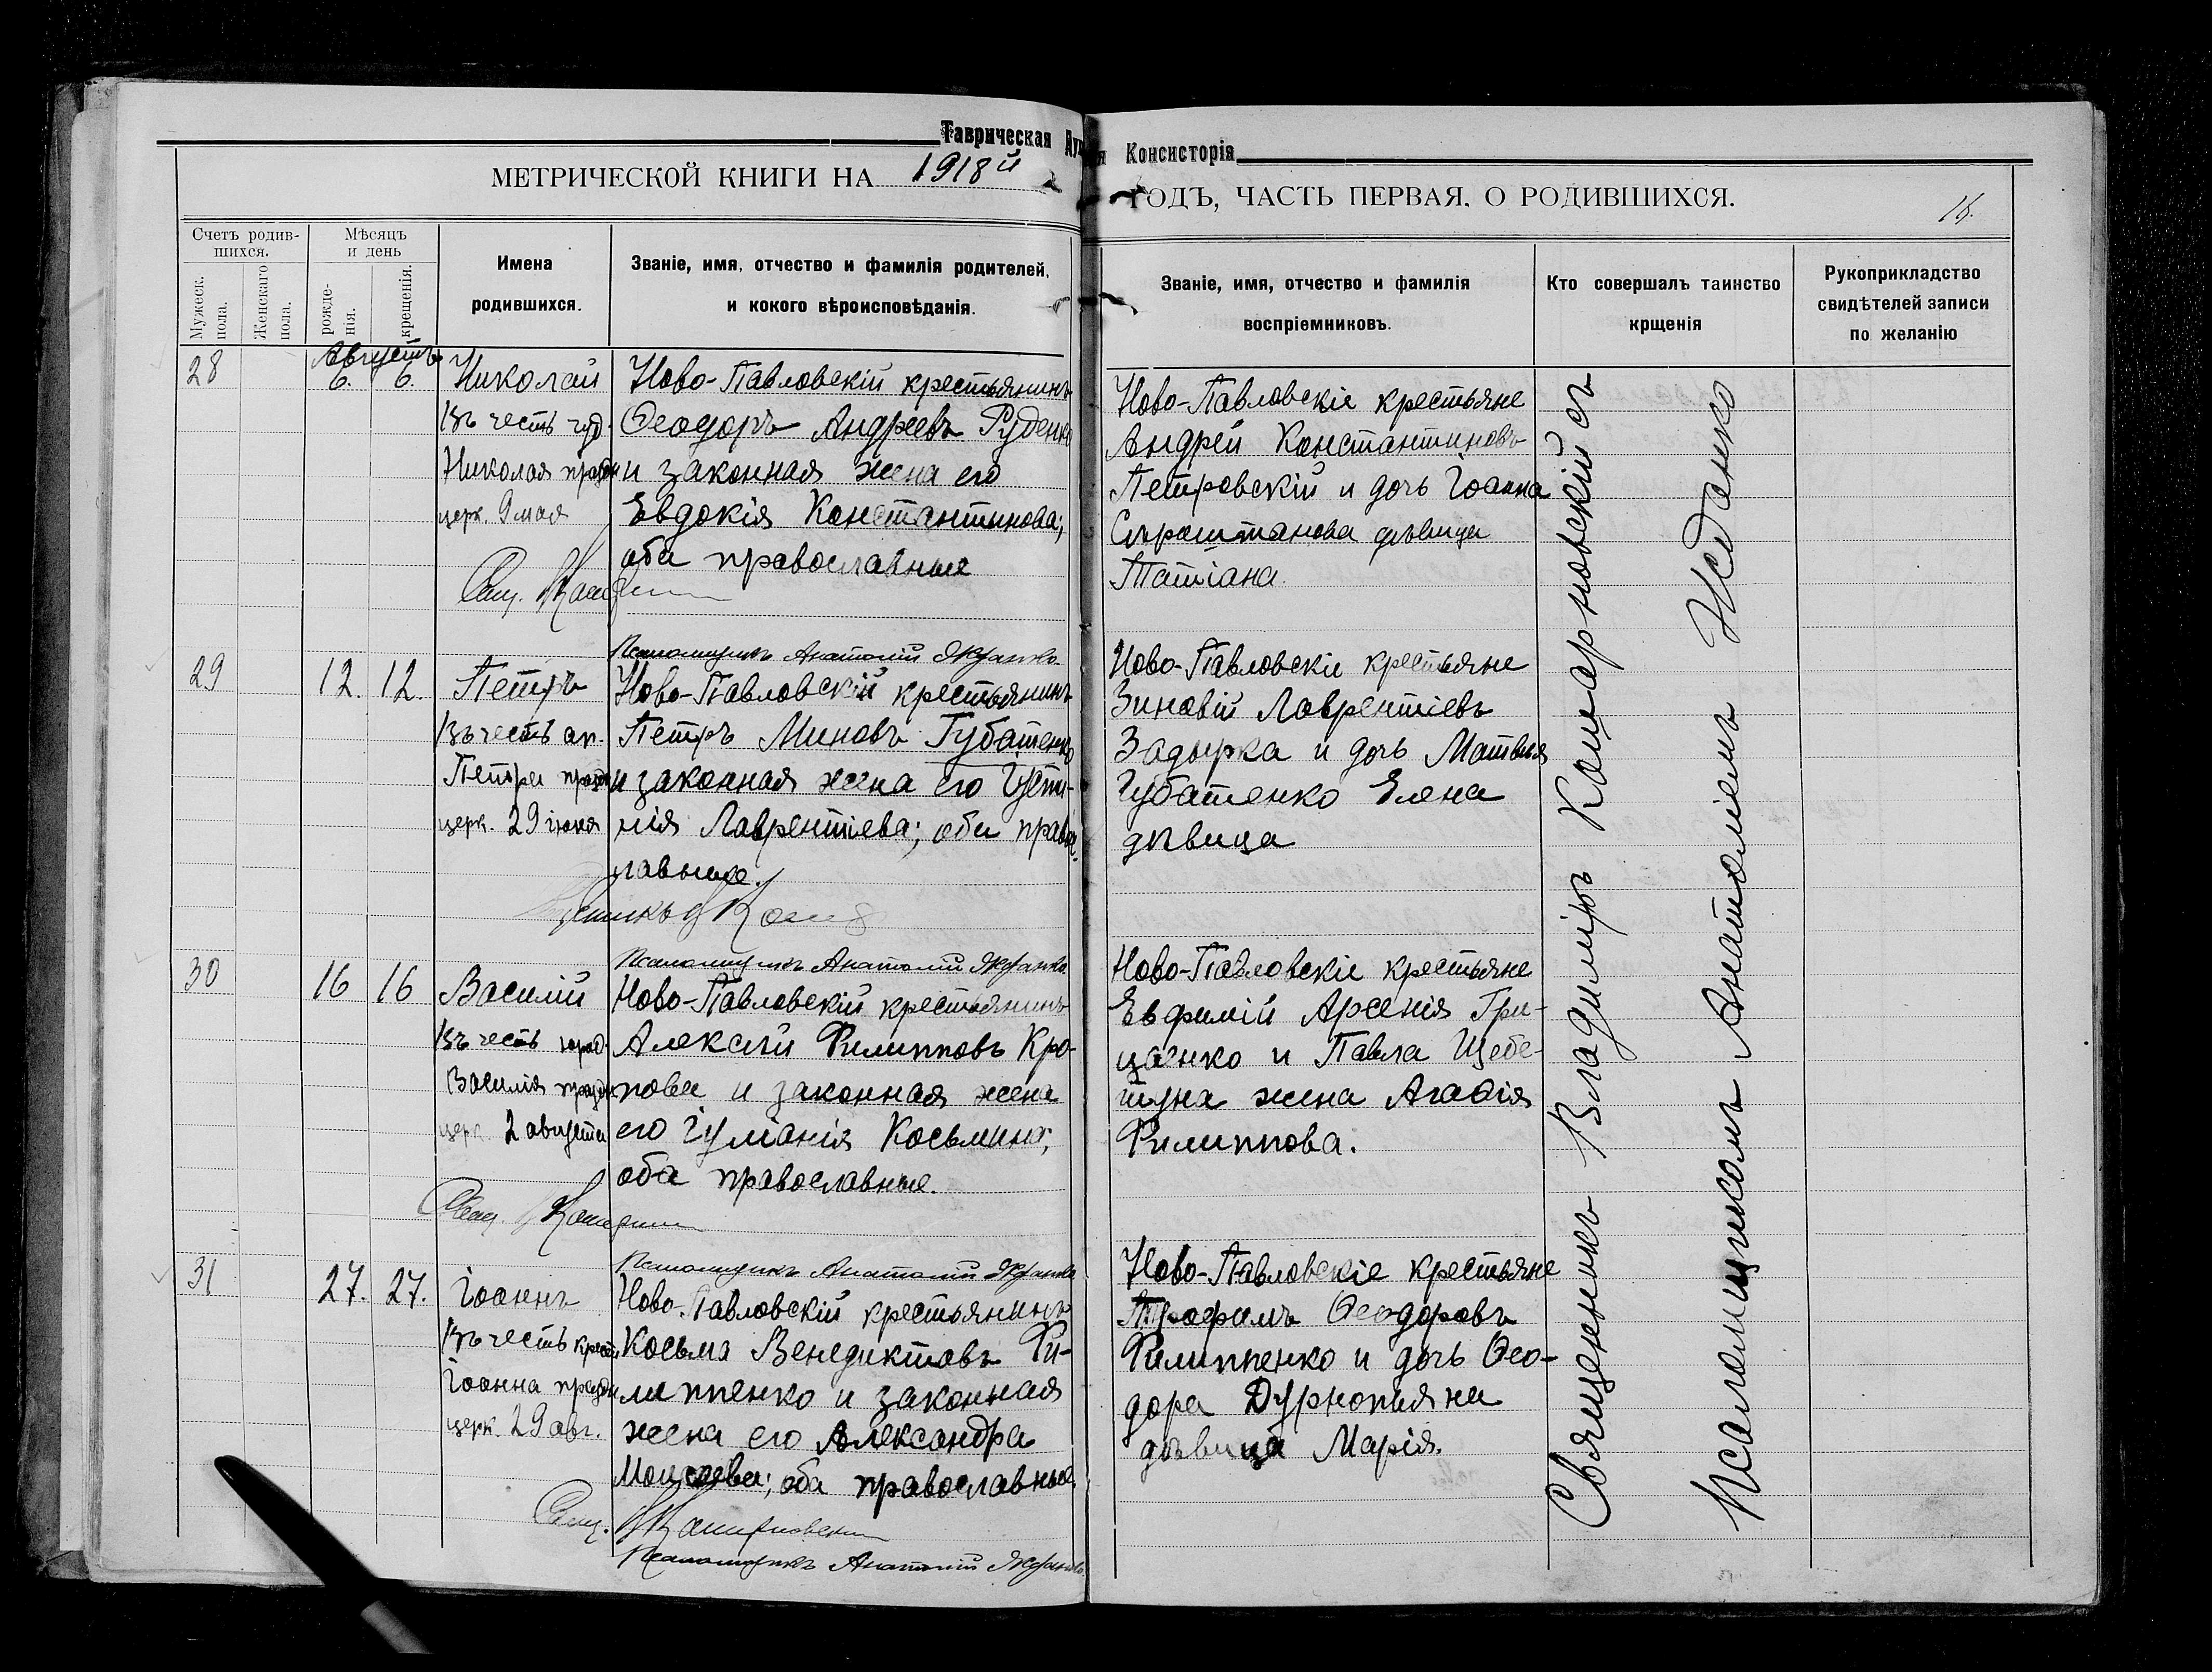 Таврическая Ду
я Консисторія
МЕТРИЧЕСКОЙ КНИГИ НА 1918й
ГОДЪ, ЧАСТЬ ПЕРВАЯ, О РОДИВШИХСЯ.
Счетъ родив-
шихся.
Мужеск.
пола.
Женскаго
пола.
Мѣсяцъ
и день
рожде-
нія.
крещенія.
Имена
родившихся.
Званіе, имя, отчество и фамилія родителей,
и кокого вѣроисповѣданія.
Званіе, имя, отчество и фамилія
воспріемниковъ.
Кто совершалъ таинство
крщенія
Рукоприкладство
свидѣтелей записи
по желанію
Августъ
28
6. 6.
Николай
Въ честь чуд.
Николая праздн
церк. 9 мая
Ново-Павловскій крестьянинъ
Ѳеодоръ Андреевъ Руденко
и законная жена его
Евдокія Константинова;
оба православные
Ново-Павловскіе крестьяне
Андрей Константиновъ
Петровскій и дочь Іоанна
дѣвица
Татіана
Свящ.
Псаломщикъ Анатолій
29
12. 12.
Петръ
Въ честь ап.
Петра праздн
церк. 29 іюня
Ново-Павловскій крестьянинъ
Петръ Миновъ Губатенко
и законная жена его Іусти-
нія Лаврентіева; оба правос-
лавные.
Ново-Павловскіе крестьяне
Зиновій Лаврентіевъ
Задырка и дочь Матвѣя
Губатенко Елена
дѣвица
Псаломщикъ Анатолій
30
16 16
Василій
Въ честь юрод.
Василія праздн
церк. 2 августа
Ново-Павловскій крестьянинъ
Алексѣй Филипповъ Кро-
пова и законная жена
его Іуліанія Косьмина;
оба православные.
Ново-Павловскіе крестьяне
Евфимій Арсенія Гри-
ценко и Павла Щебе-
туна жена Агафія
Филиппова.
Свящ.
Псаломщикъ Анатолій
31
27. 27.
Іоаннъ
Въ честь крест
Іоанна праздн
церк. 29 авг.
Ново-Павловскій крестьянинъ
Косьма Венедиктовъ Фи-
липпенко и законная
жена его Александра
Моисеева; оба православные.
Ново-Павловскіе крестьяне
Трофимъ Ѳеодоровъ
Филиппенко и дочь Ѳео-
дора Дурнопьяна
дѣвица Марія.
Свящ.
Псаломщикъ Анатолій
Священникъ Владиміръ Кошарновскій съ
Псаломщикомъ Анатоліемъ